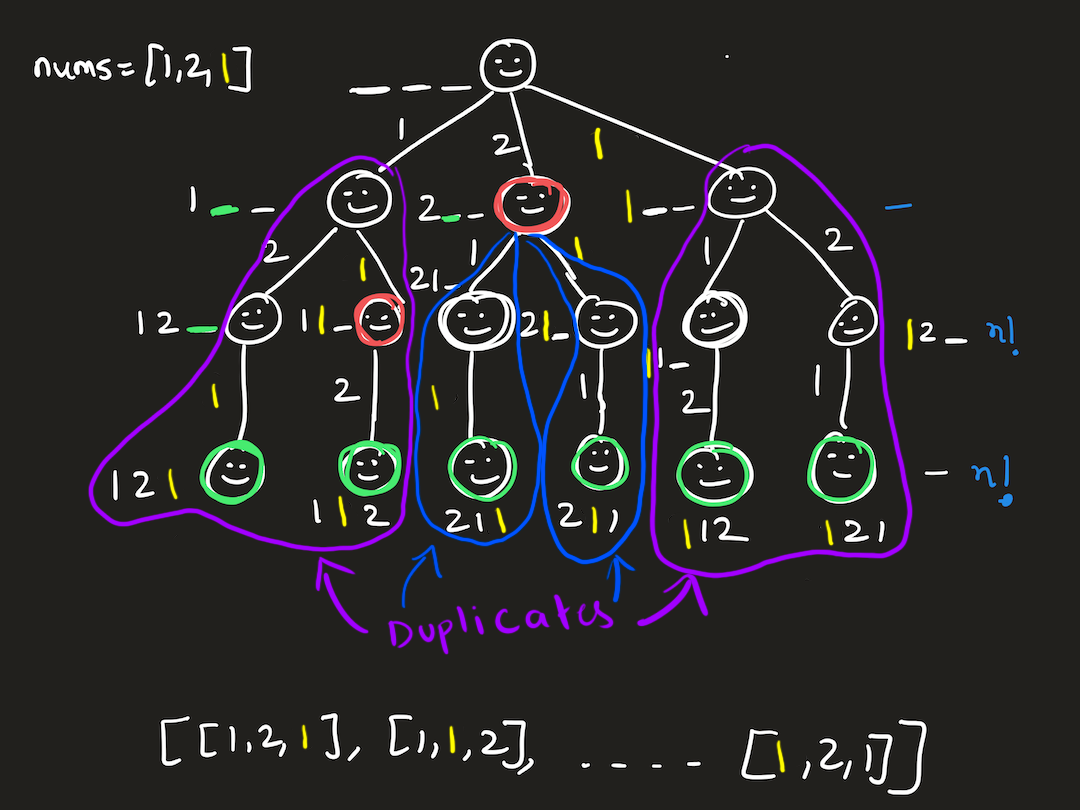 nums=[1,2,1]
_ _ _
1 2 1
1 _ _ 2 _ _ 1 _ _ _
2 1 1 1 1 2
12_ 11_ 21_ 21_ 11_ 12_ n!
1 2 1 1 2 1
121 112 211 211 112 121 - n!
Duplicates
[[1,2,1], [1,1,2], . . . . [1,2,1]]